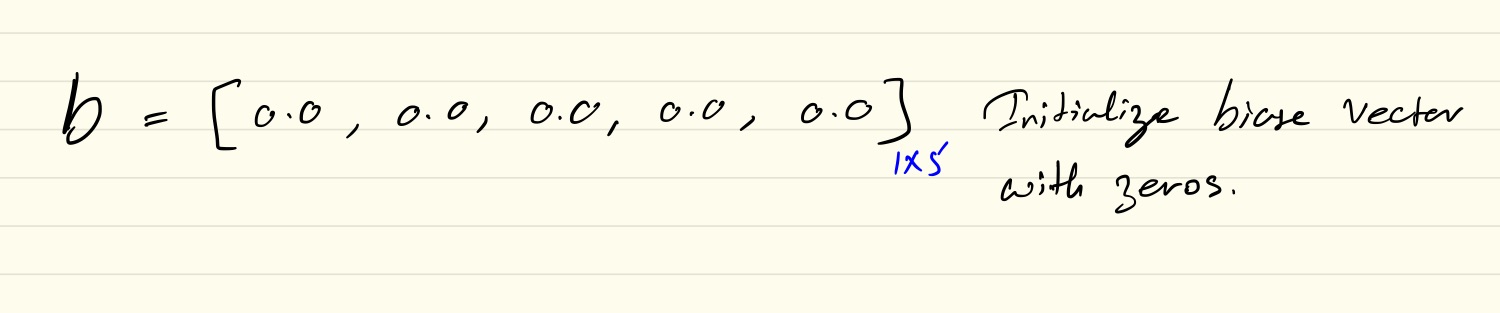 b = [0.0, 0.0, 0.0, 0.0, 0.0] 1×5 Initialize biase vector
with zeros.